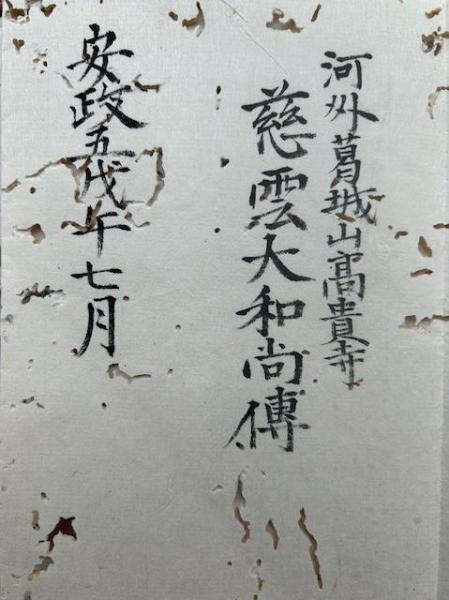 河州葛城山高貴寺
慈雲大和尚傳
安政五戊午七月